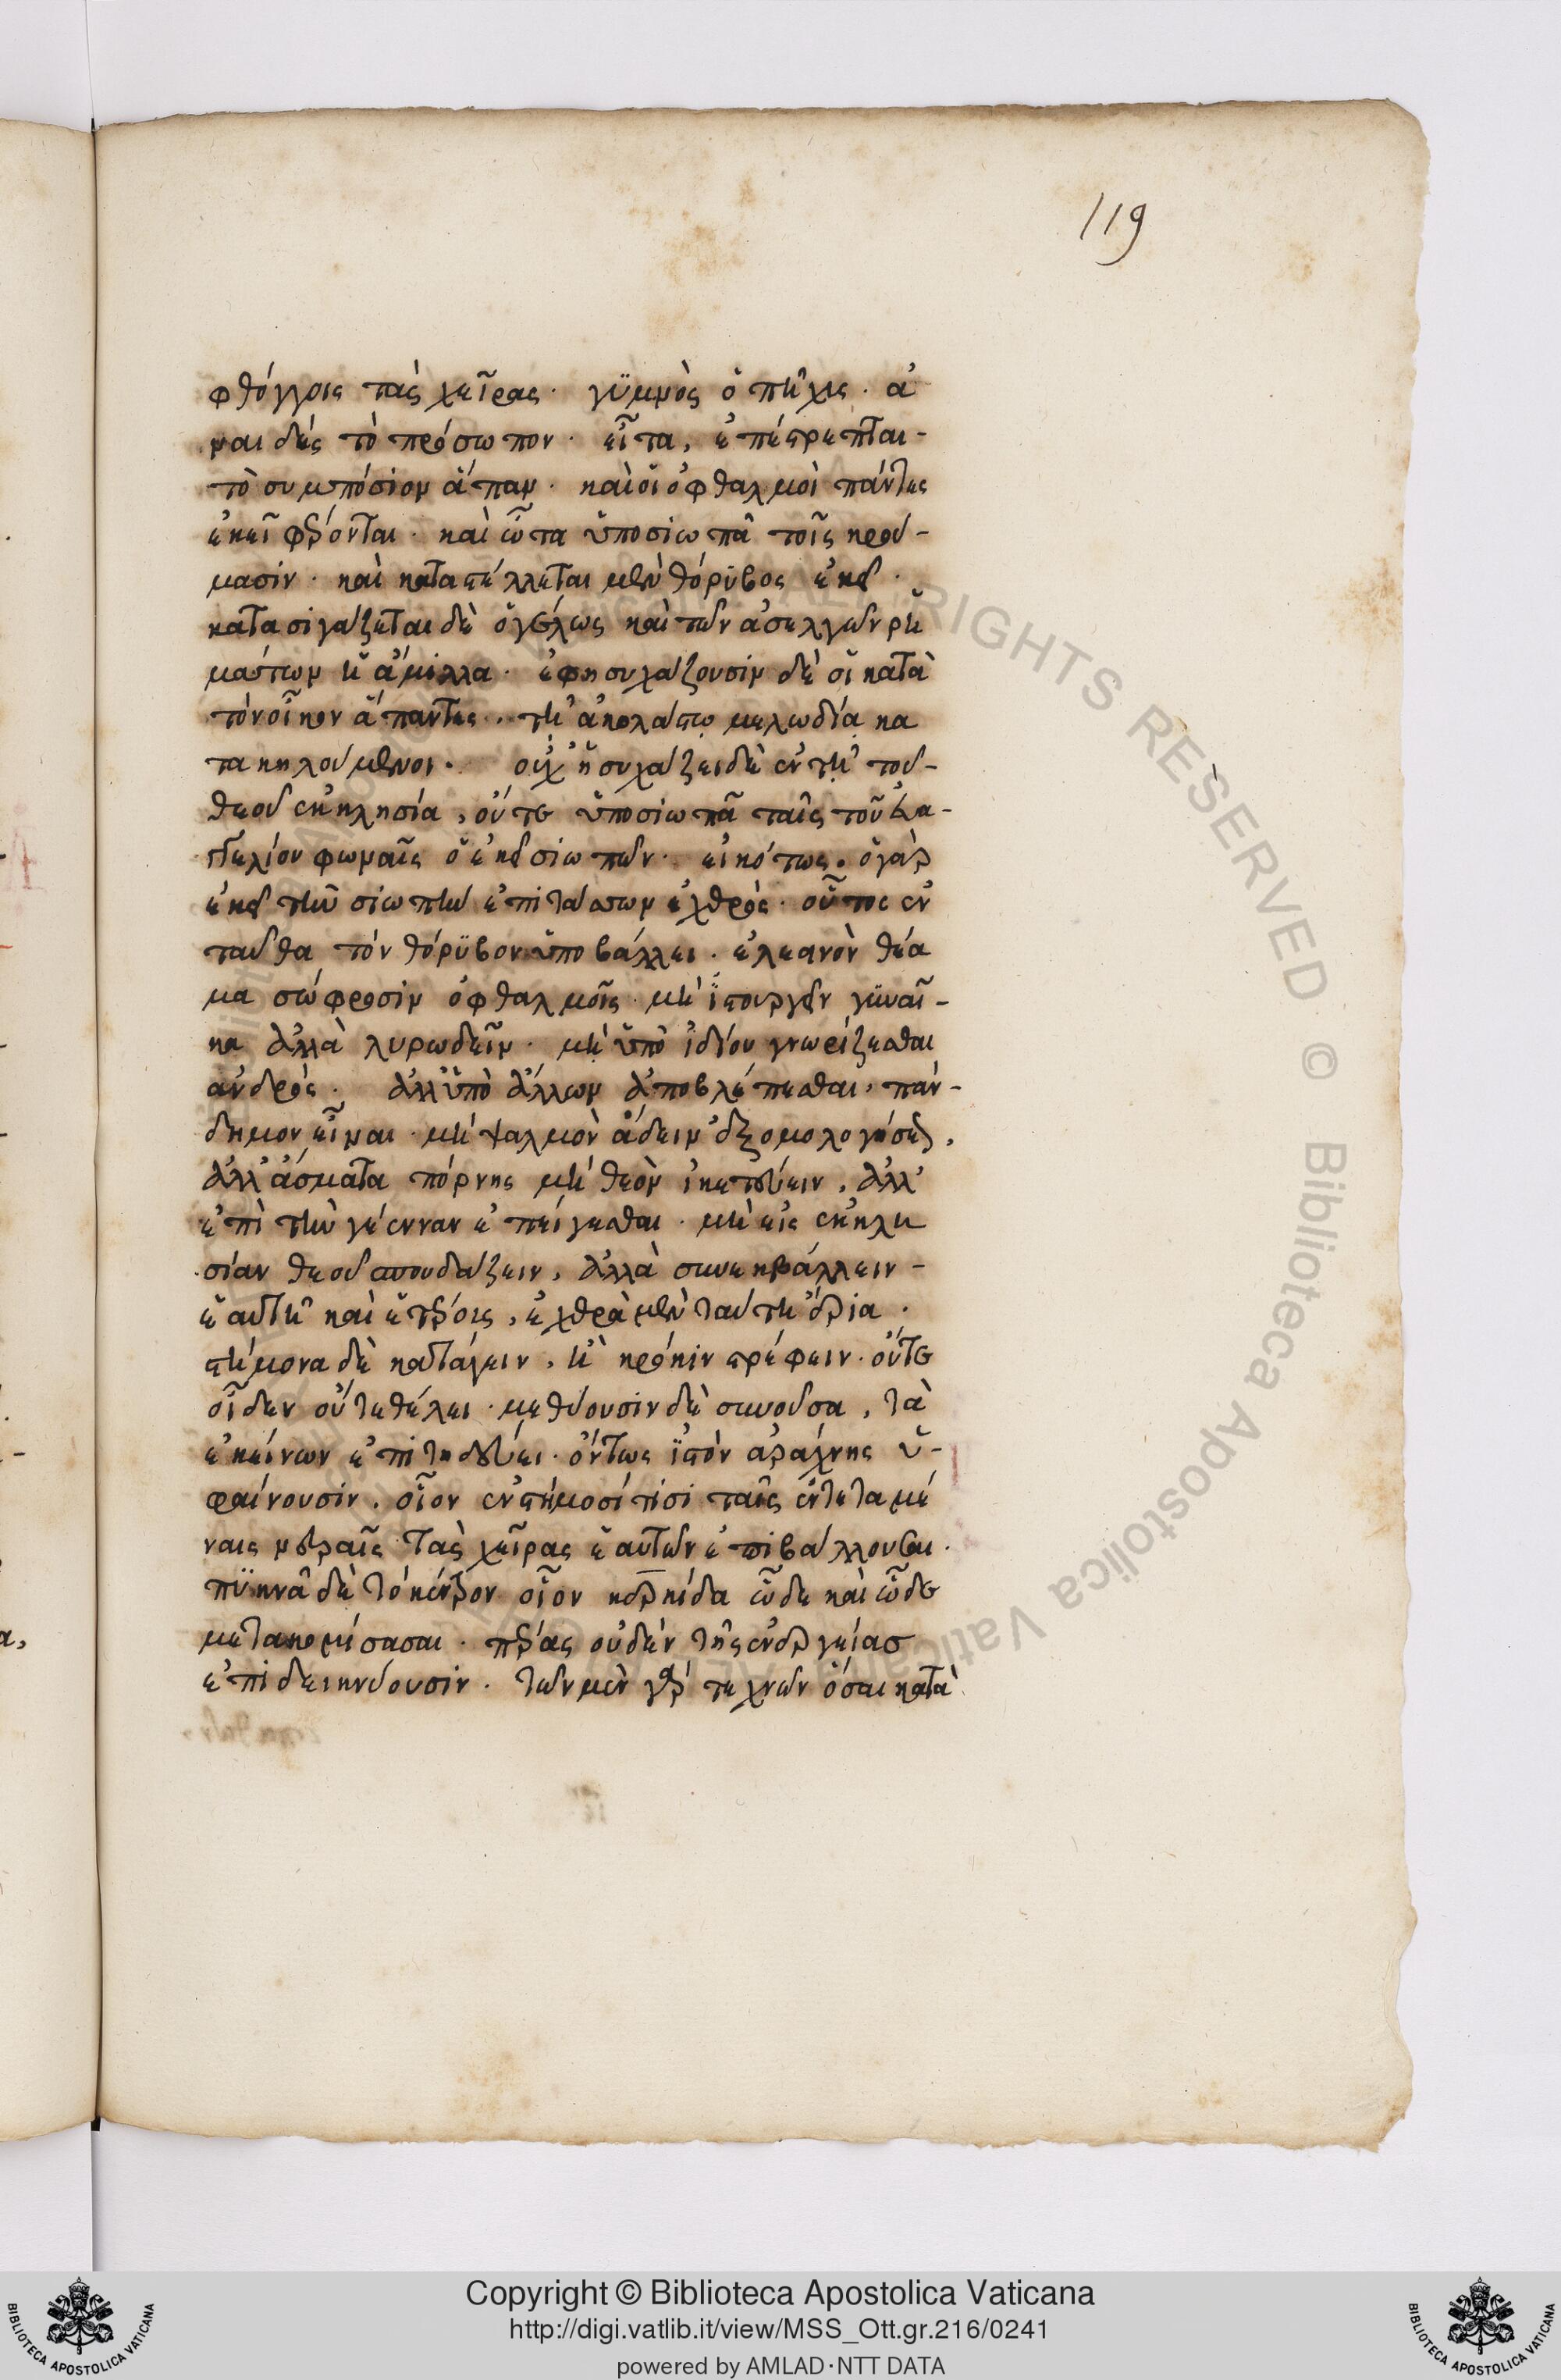 119
φθόγγοις τὰς χεῖρας · γϋμνὸς ὁ πῆχις · ἀ
ναιδὲς τὸ πρόσωπον · εἶτα, ἐπέστρεπται -
τὸ συμπόσιον ἅπαν · καὶ οἱ ὀφθαλμοὶ πάντες
ἐκεῖ φέρονται · καὶ ὦτα ὑποσιωπᾶ τοῖς κρού -
μασιν · καὶ καταστέλλεται μὲν θόρυβος ἐκεῖ ·
κατασιγάζεται δὲ ὁ γέλως καὶ τῶν ἀσελγῶν ρη
μάτων ἡ ἅμιλλα · ἐφησυχάζουσιν δὲ οἱ κατὰ
τὸν οἶκον ἅπαντες · τῆ ἀκολάστω μελωδία κα
τακηλούμενοι · οὐχ ἡσυχάζει δὲ ἐν τῆ τοῦ -
θεοῦ ἐκκλησία, οὔτε ὑποσιωπᾶ ταῖς τοῦ εὐα -
γγελίου φωναῖς ὁ ἐκεῖ σιωπῶν · εἰκότως · ὁ γὰρ
ἐκεῖ τὴν σιωπὴν ἐπιτάσσων ἐχθρὸς · οὗτος ἐν
ταῦθα τὸν θόρϋβον ὑποβάλλει · ἐλεεινὸν θέα
μα σώφροσιν ὀφθαλμοῖς · μὴ ἱστουργεῖν γϋναῖ -
κα ἀλλὰ λυρωδεῖν · μὴ ὑπὸ ἰδίου γνωρίζεσθαι
ἀνδρὸς · ἀλλ' ὑπὸ ἄλλων ἀποβλέπεσθαι, πάν -
δημον εἶναι · μὴ ψαλμὸν ἄδειν ἐξομολογήσεως,
ἀλλ' ἄσματα πόρνης μὴ θεὸν ἱκετεύειν, ἀλλ'
ἐπὶ τὴν γέενναν ἐπείγεσθαι · μὴ εἰς ἐκκλη
σίαν θεοῦ σπουδάζειν, ἀλλὰ συνεκβάλλειν -
ἑαυτῆ καὶ ἑτέροις, ἐχθρὰ μὲν ταύτη ἔρια ·
στήμονα δὲ κατάγειν, ἢ κρόκιν στρέφειν · οὔτε
οἶδεν οὔτε θέλει · μεθύουσιν δὲ συνοῦσα, τὰ
ἐκείνων ἐπιτηδεύει · ὄντως ἱστὸν ἀράχνης ὑ -
φαίνουσιν · οἷον ἐν στήμοσί τισι ταῖς ἐντεταμέ
ναις νευραῖς τὰς χεῖρας ἑαυτῶν ἐπιβάλλουσαι ·
πϋκνὰ δὲ τὸ κέντρον οἷον κερκίδα ὧδε καὶ ὧδε
μετακομίσασαι · πέρας οὐδὲν τῆς ἐνεργείασ
ἐπιδεικνύουσιν · τῶν μὲν γὰρ τεχνῶν ὅσαι κατὰ
Copyright © Biblioteca Apostolica Vaticana
http://digi.vatlib.it/view/MSS_Ott.gr.216/0241
powered by AMLAD·NTT DATA